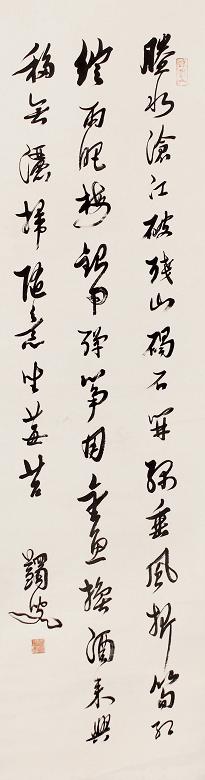 賸水滄江破殘山碣石開綠垂風折筍紅
綻雨肥梅銀甲彈箏用金魚換酒來興
移無灑埽隨意坐莓苔
蠲叟